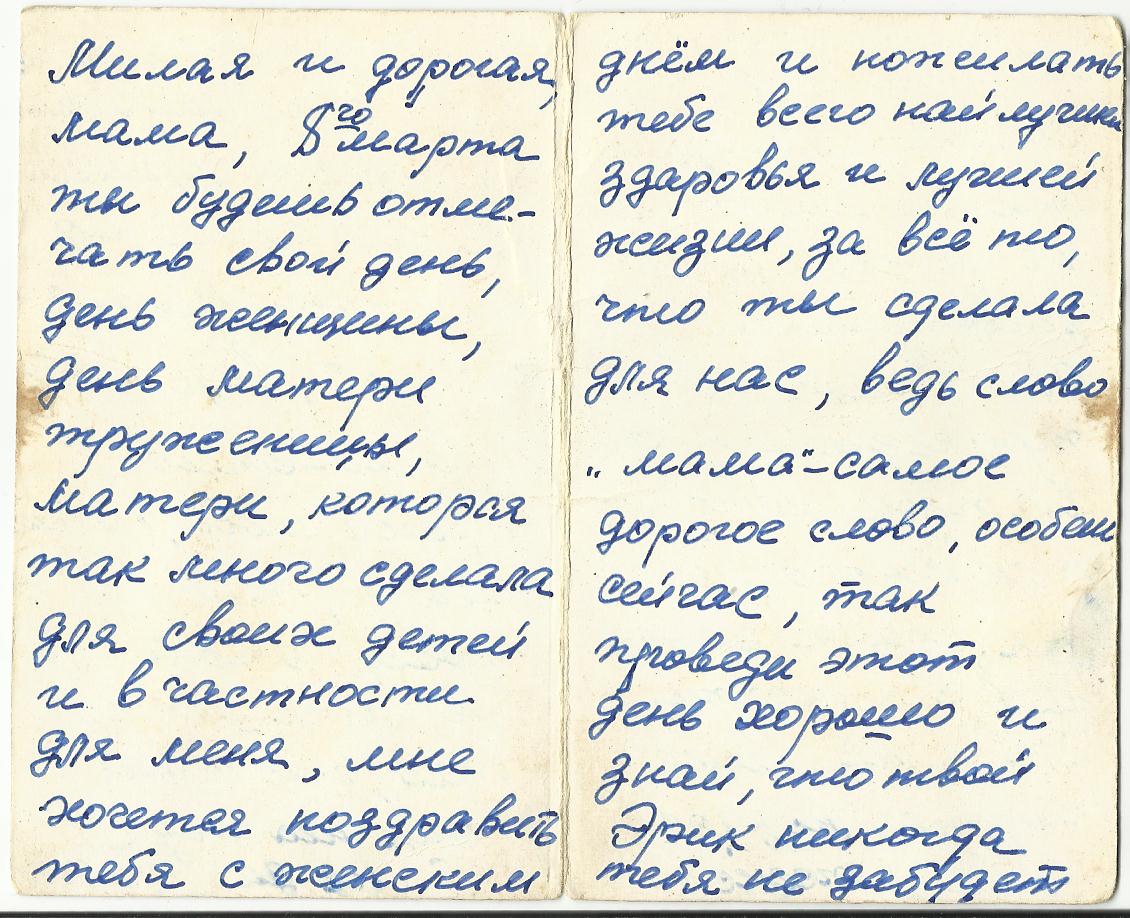 Милая и дорогая,
мама, 8го марта
ты будешь отме-
чать свой день,
день женщины,
день матери
труженицы,
матери, которая
так много сделала
для своих детей
и в частности
для меня, мне
хочется поздравить
тебя с женским
днём и пожелать
тебе всего найлучши
здаровья и лучшей
жизни, за всё то,
что ты сделала
для нас, ведь слово
„мама"-самое
дорогое слово, особен
сейчас, так
проведи этот
день хорошо и
знай, что твой
Эрик никогда
тебя не забудет